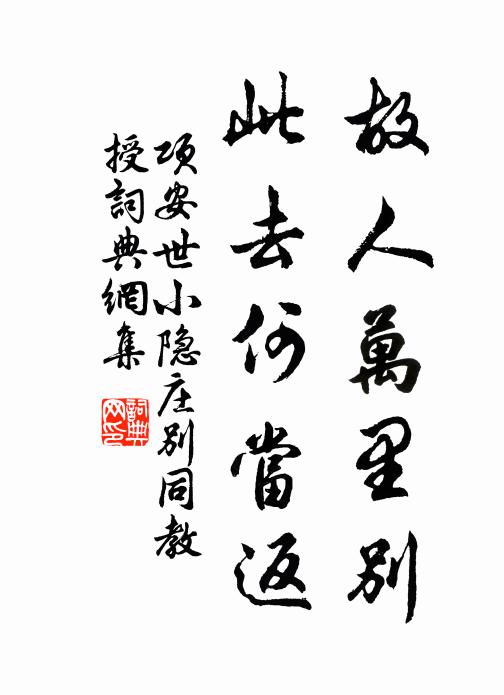 故人萬里別
此去何當返
項安世小隐庄別同教
授詞典網集
詞典
网印